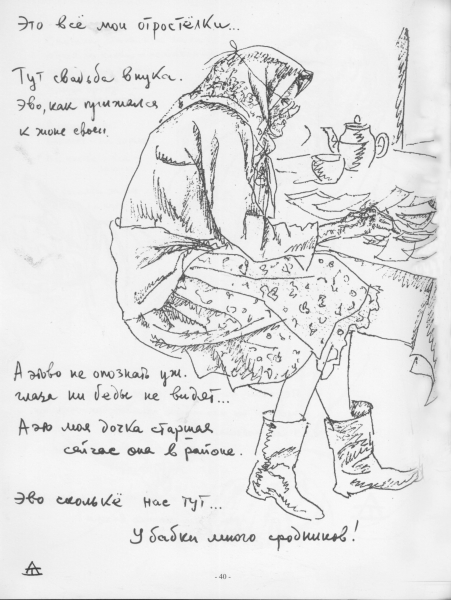 Это всё мои отростёлки...
Тут свадьба внука.
Эво, как прижался
к жоне своей.
А этово не опознать уж.
глаза ни беды не видят...
А эю моя дочка старшая
сейчас она в районе.
Эво сколькё нас тут...
У бабки много сродников!
- 40 -